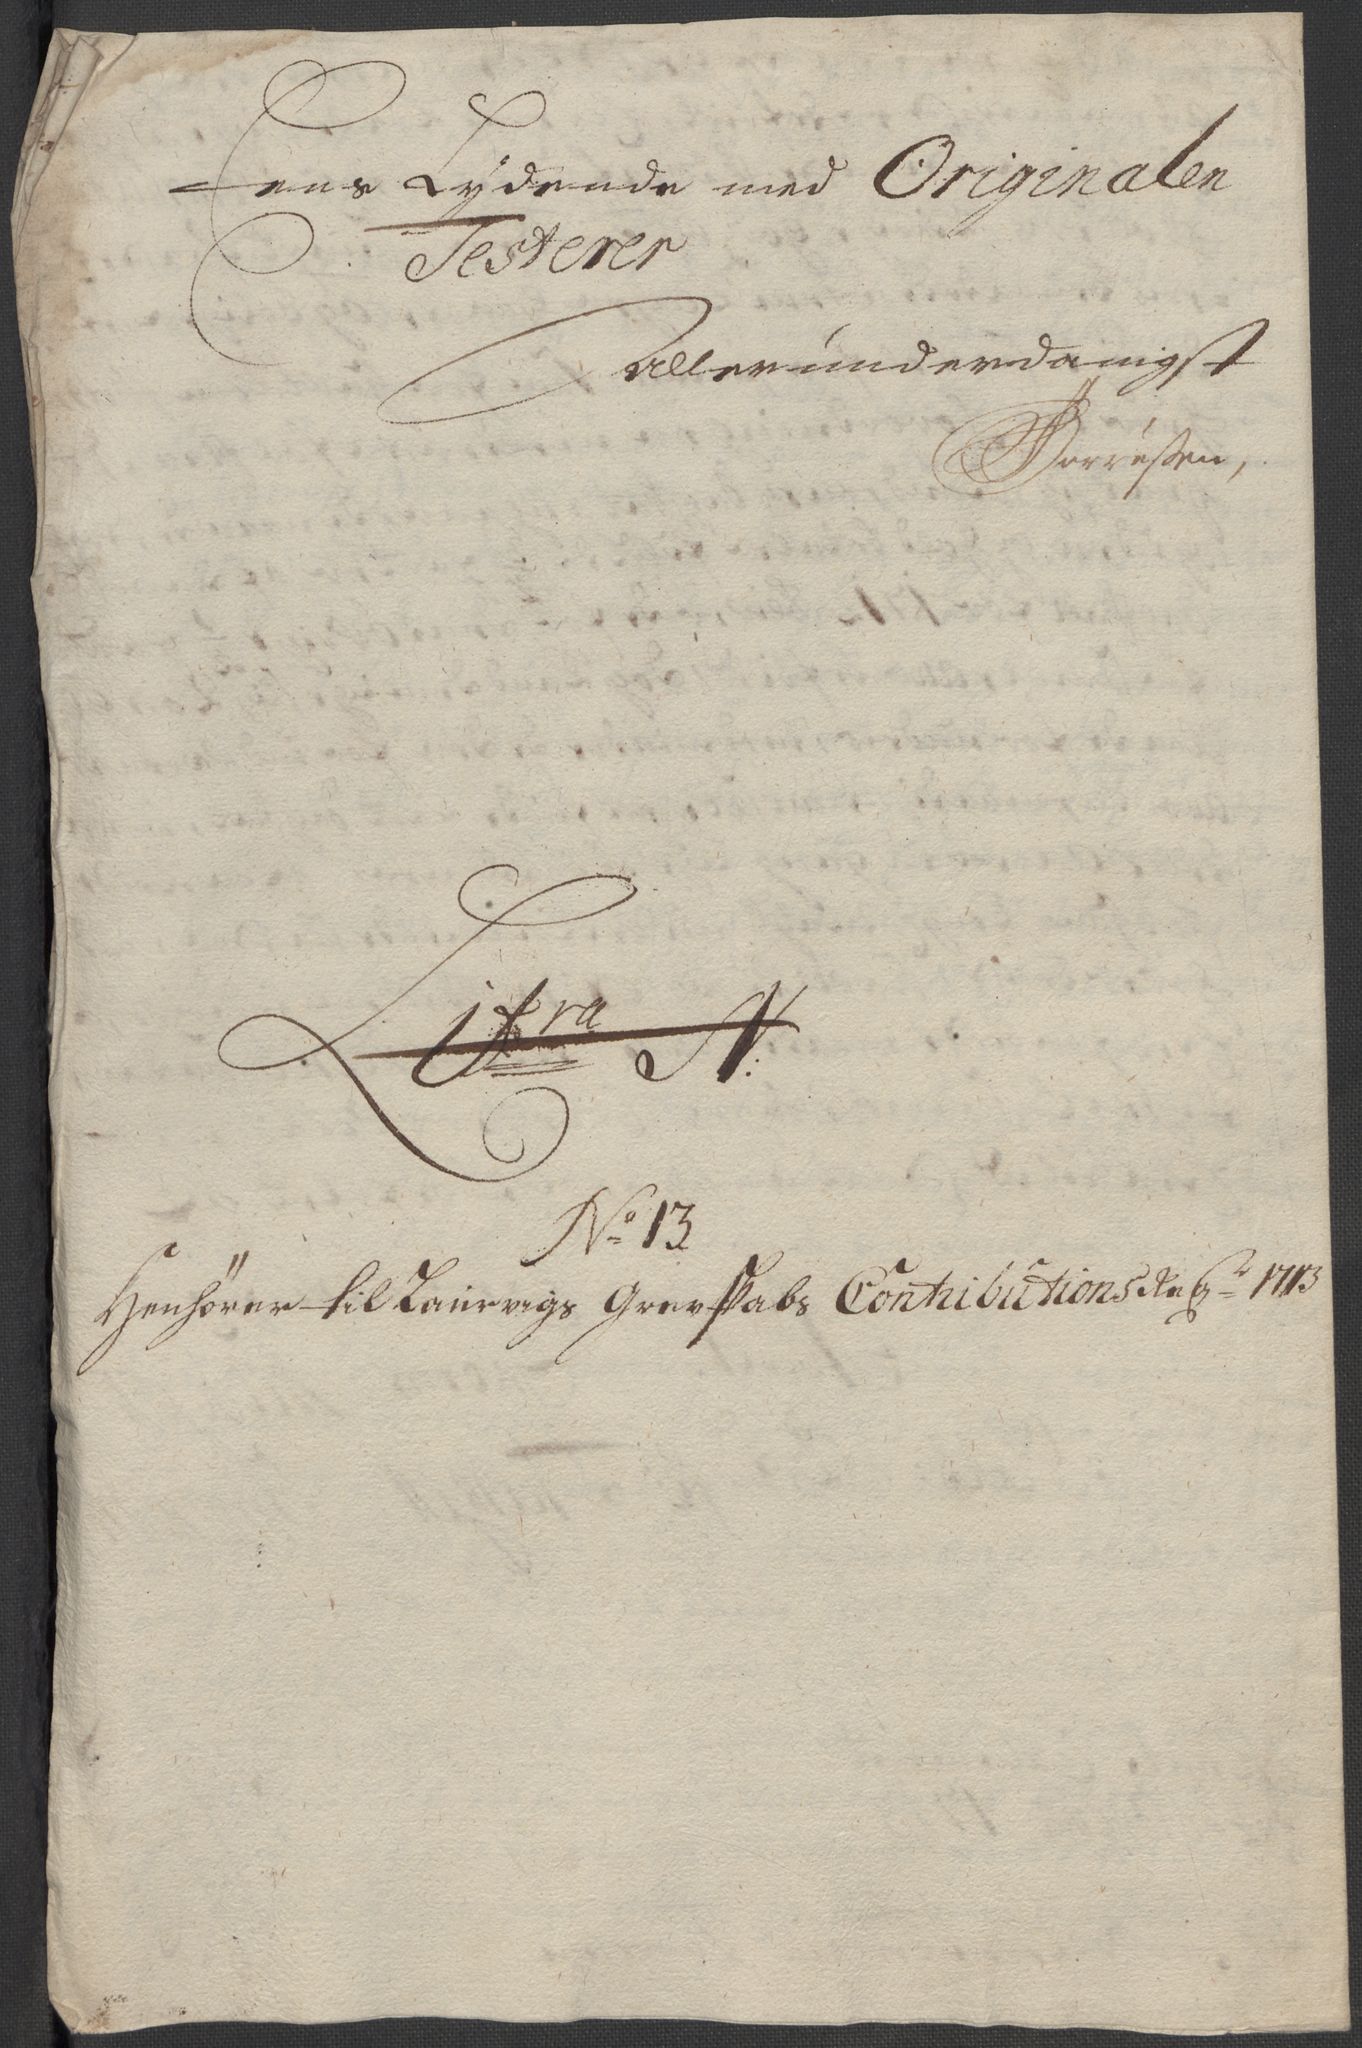 Eens Lydende med Originalen
Testerer
Allerunderdanigst
Litra N:
No 13
Henhörer til Laurvigs Grevskabs Contributions Regr 1713